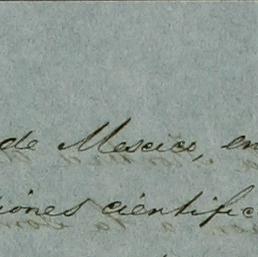 de Mexico, en
ciones cientific